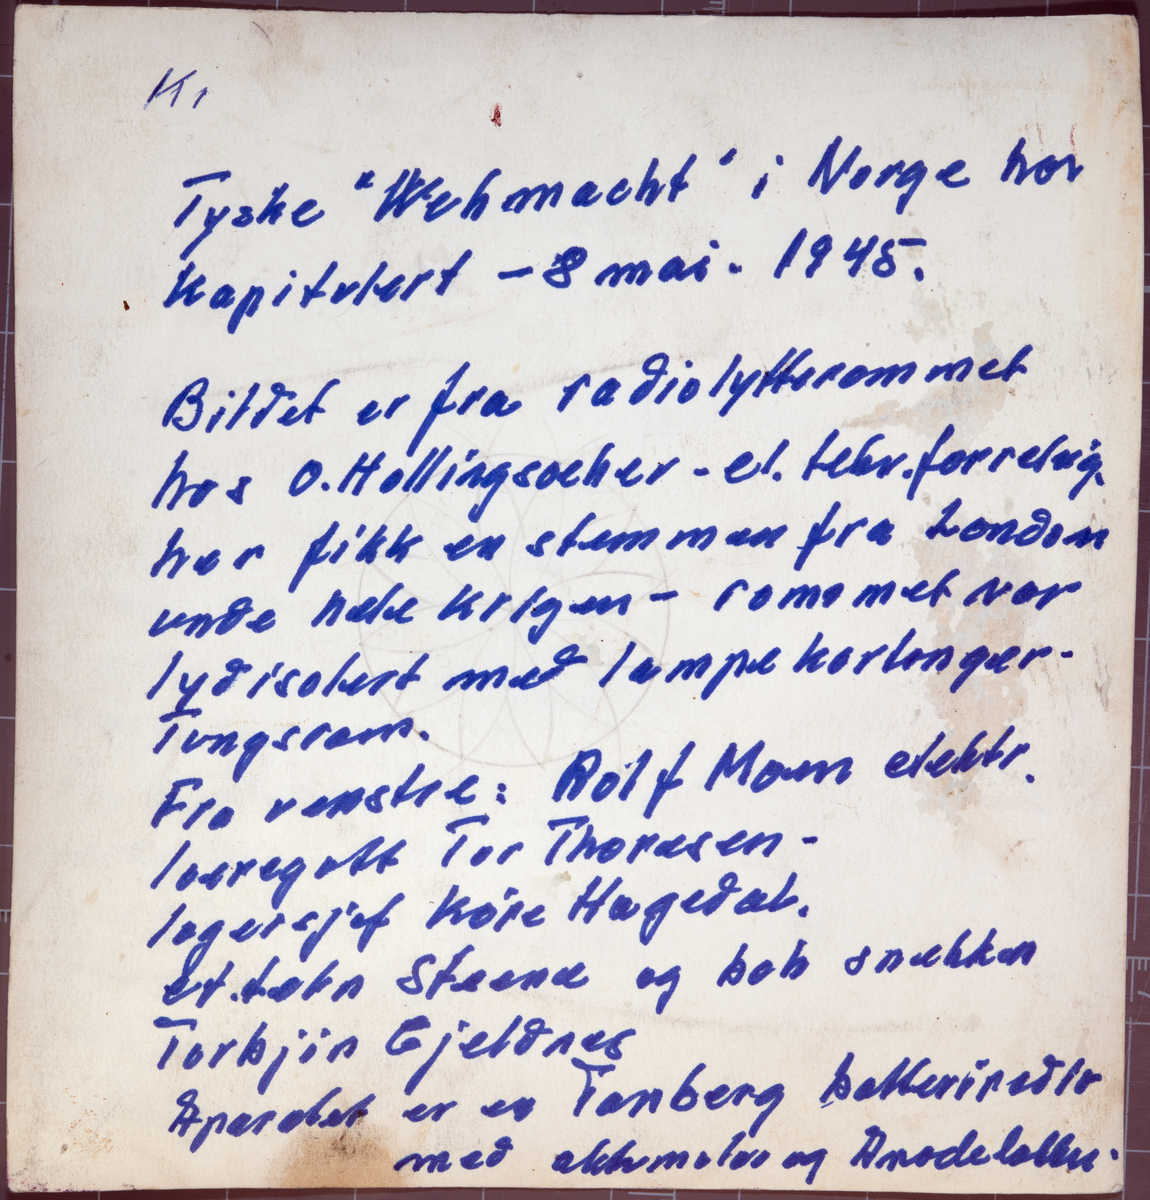 Kr
Tyske "Wehmacht" i Norge har
Kapitulert - 8 mai. 1945.
Bildet er fra radiolytterommet
hos O. Hollingsæther - el.
her fikk en stemmen fra London
unde hele krigen - rommet var
lydisolert med lampekartonger -
Tungsram.
Fra venstre: Rolf Moen elektr.
læregutt Tor Thoresen -
lagersjef Kåre Hagedal.
Steene og båt snekker
Torbjin Gjeldnes
Aparatet er en Tanberg batteriradio
med akkumolar og Anodebatteri.